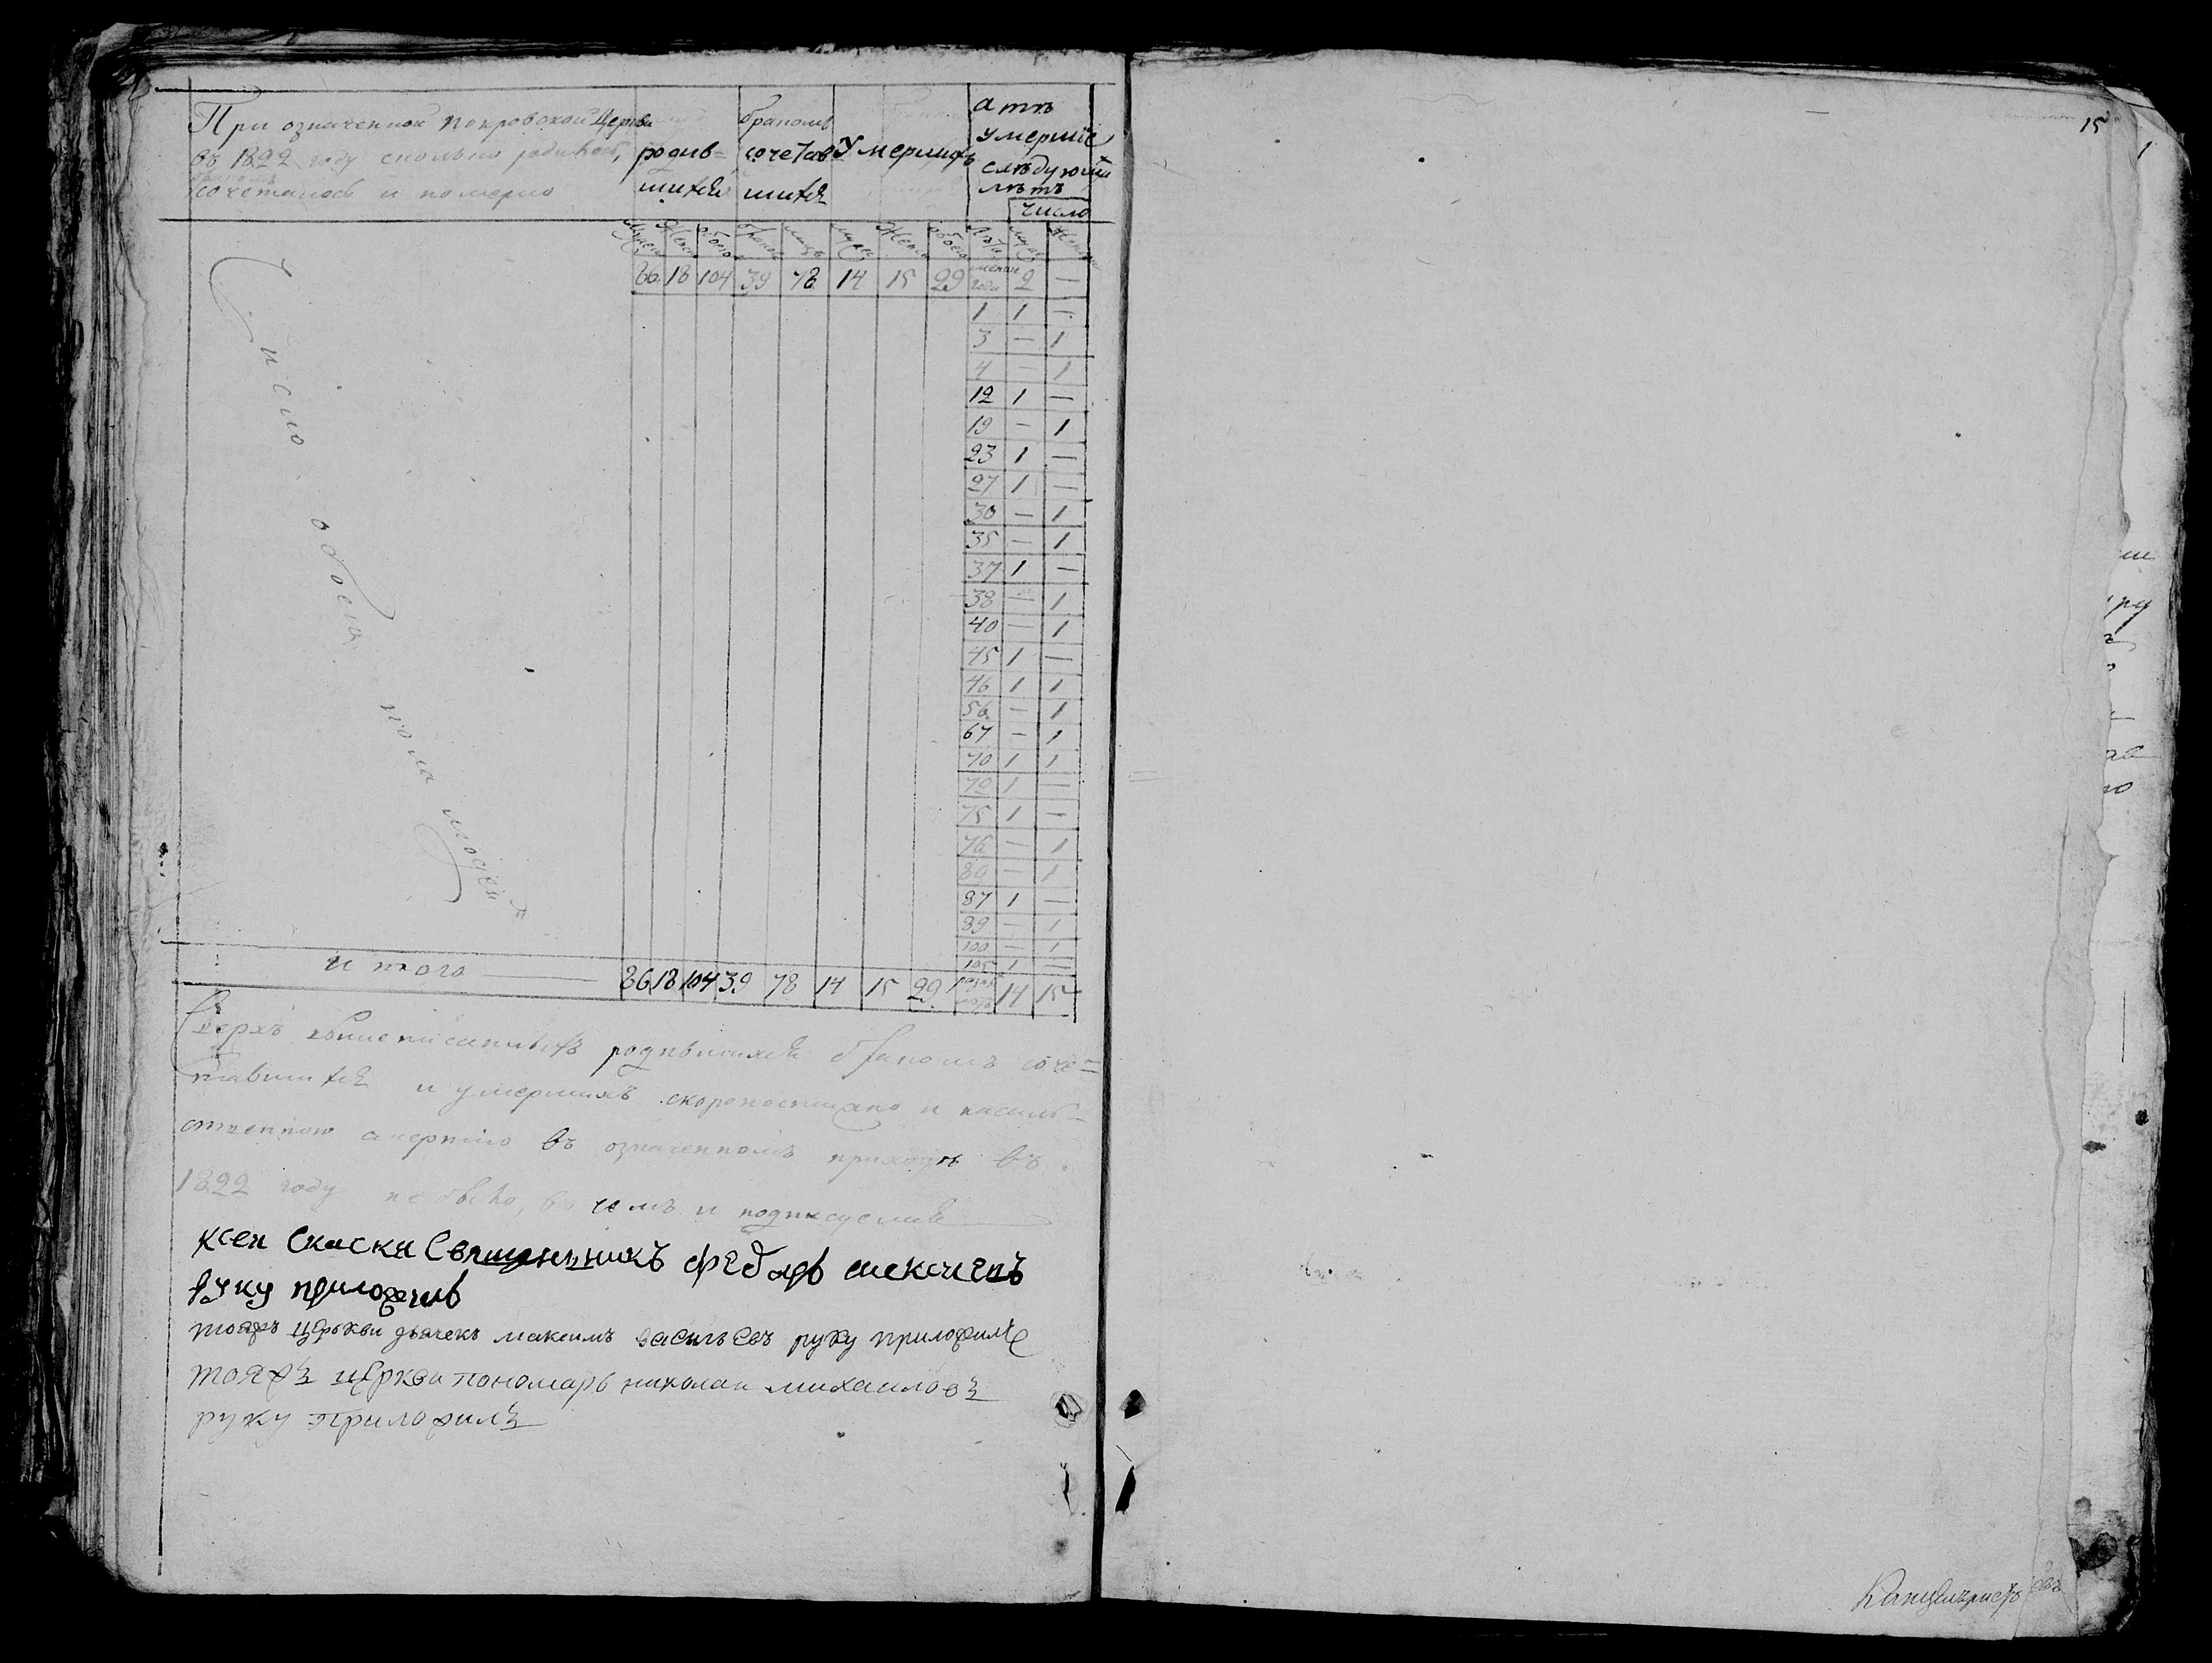 При означенной Покровской Церкви
въ 1822 году сколько родилось,
бракомъ
сочеталось и померло
родив=
шихся
бракомъ
сочетав
шихся
Умершихъ
а тѣ
умершіе
слѣдующи
лѣтъ
число
мужеск
женск
обоего
браковъ
лицъ
мужес
женск
обоего
лѣта
муже
женск
86 18 104 39 78 14 15 29 менше года 2 —
1 1 —
3 — 1
4 — 1
12 1 —
19 — 1
23 1 —
27 1 —
30 — 1
35 — 1
37 1 —
38 — 1
40 — 1
45 1 —
46 1 1
56 — 1
67 — 1
70 1 1
72 1 —
75 1 —
76 — 1
80 — 1
87 1 —
89 — 1
100 — 1
105 1 —
Число обоего пола людей
итого 86 18 104 39 78 14 15 29 14 15
Сверхъ вышеписанныхъ родившихся бракомъ соче=
тавшихся и умершихъ скоропостижно и насиль=
ственною смертію въ означенномъ приходѣ въ
1822 году не было, въ чемъ и подписуемся
ксеи скаски Священникъ федоръ
руку приложилъ
тояжъ церкви дьячекъ максимъ васильевъ руку приложилъ
тояжъ церкви пономарь николаи михаиловъ
руку приложилъ
15
Канцеляристъ